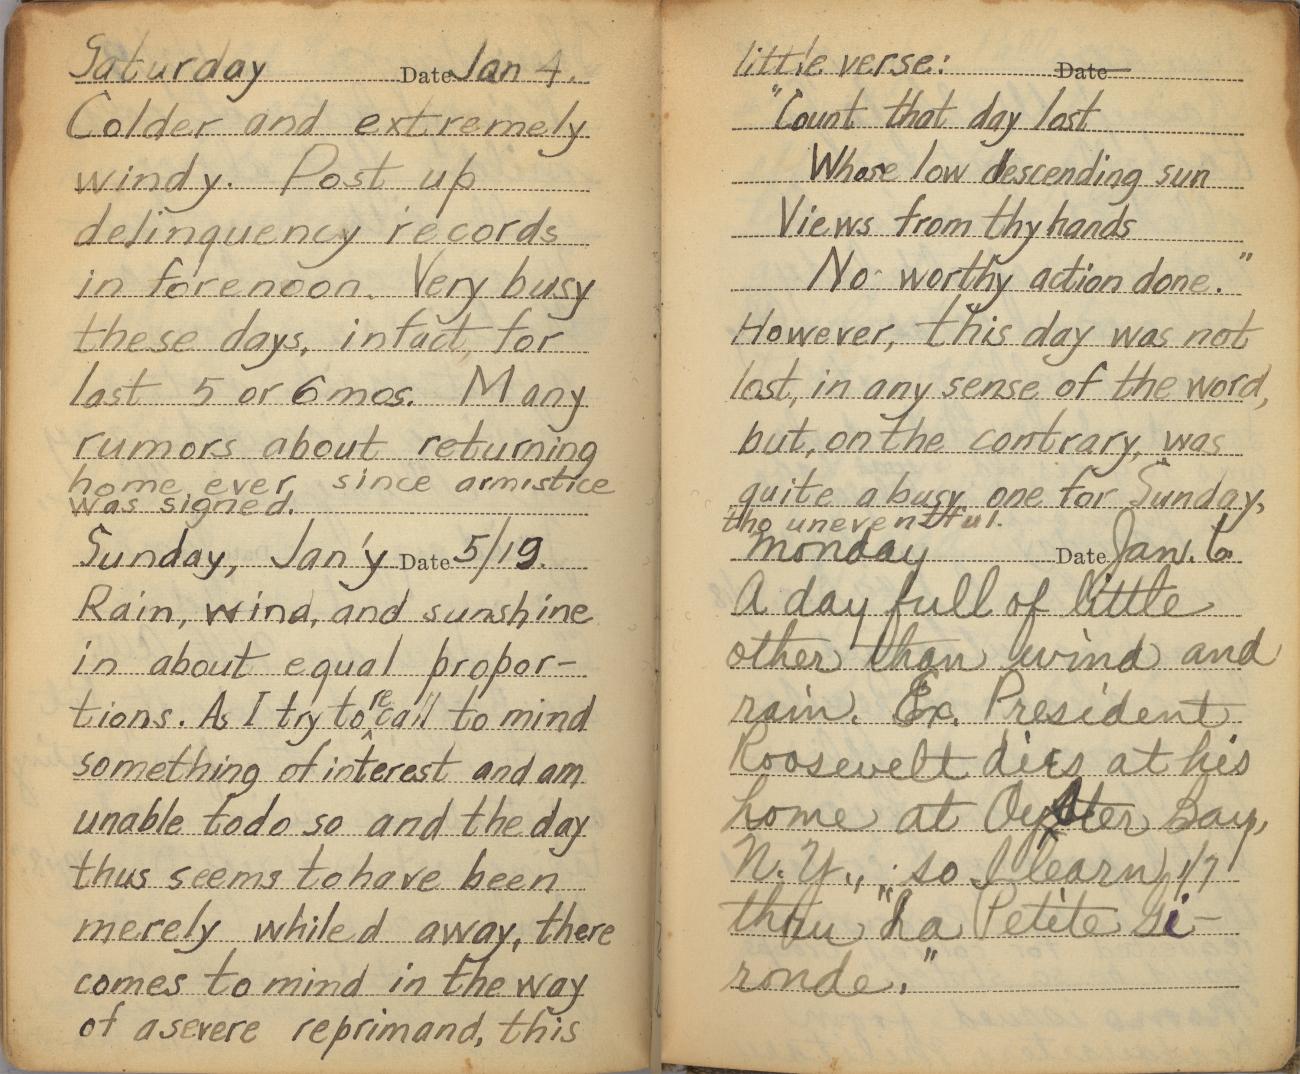 Saturday Date Jan 4.
Colder and extremely
windy. Post up
delinquency records
in forenoon. Very busy
these days, in fact, for
last 5 or 6 mos. Many
rumors about returning
home ever since armistice
was signed.
Sunday, Jan'y Date 5/19.
Rain, wind, and sunshine
in about equal propor-
tions. As I try to recall to mind
something of interest and am
unable to do so and the day
thus seems to have been
merely whiled away, there
comes to mind in the way
of a severe reprimand, this
little verse: Date
"Count that day lost
Whose low descending sun
Views from thy hands
No worthy action done."
However, this day was not
lost, in any sense of the word,
but, on the contrary, was
quite a busy one for Sunday,
tho uneventful.
Monday Date Jan. 6
A day full of little
other than wind and
rain. Ex. President
Roosevelt dies at his
home at Oyster Bay,
N.Y., so I learn 1/7
thru "La Petite Gi-
ronde."